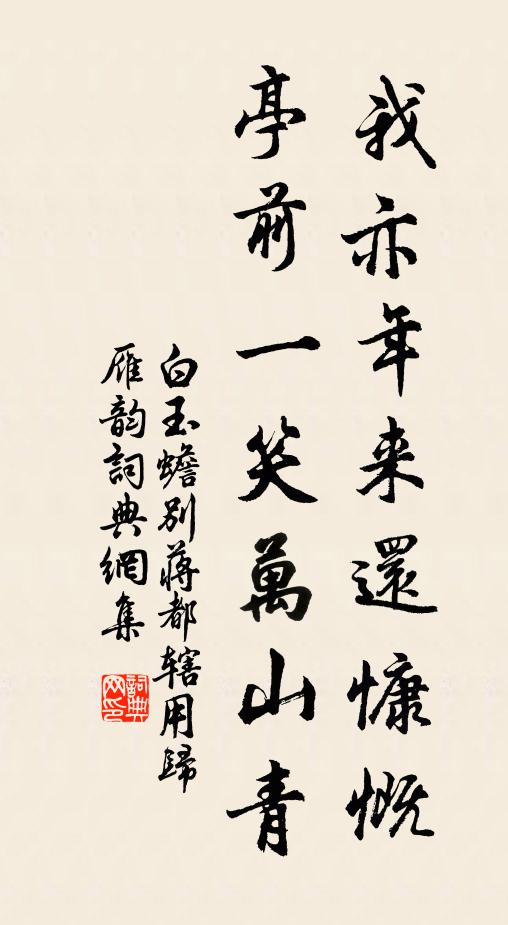 我亦年来還慷慨
亭前一笑萬山青
白玉蟾别蒋都轄用歸
雁韵詞典網集
詞典
网印